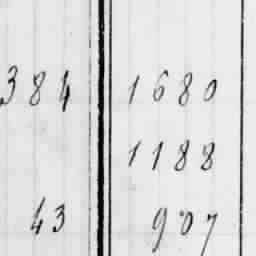 384 1680
1188
43 907